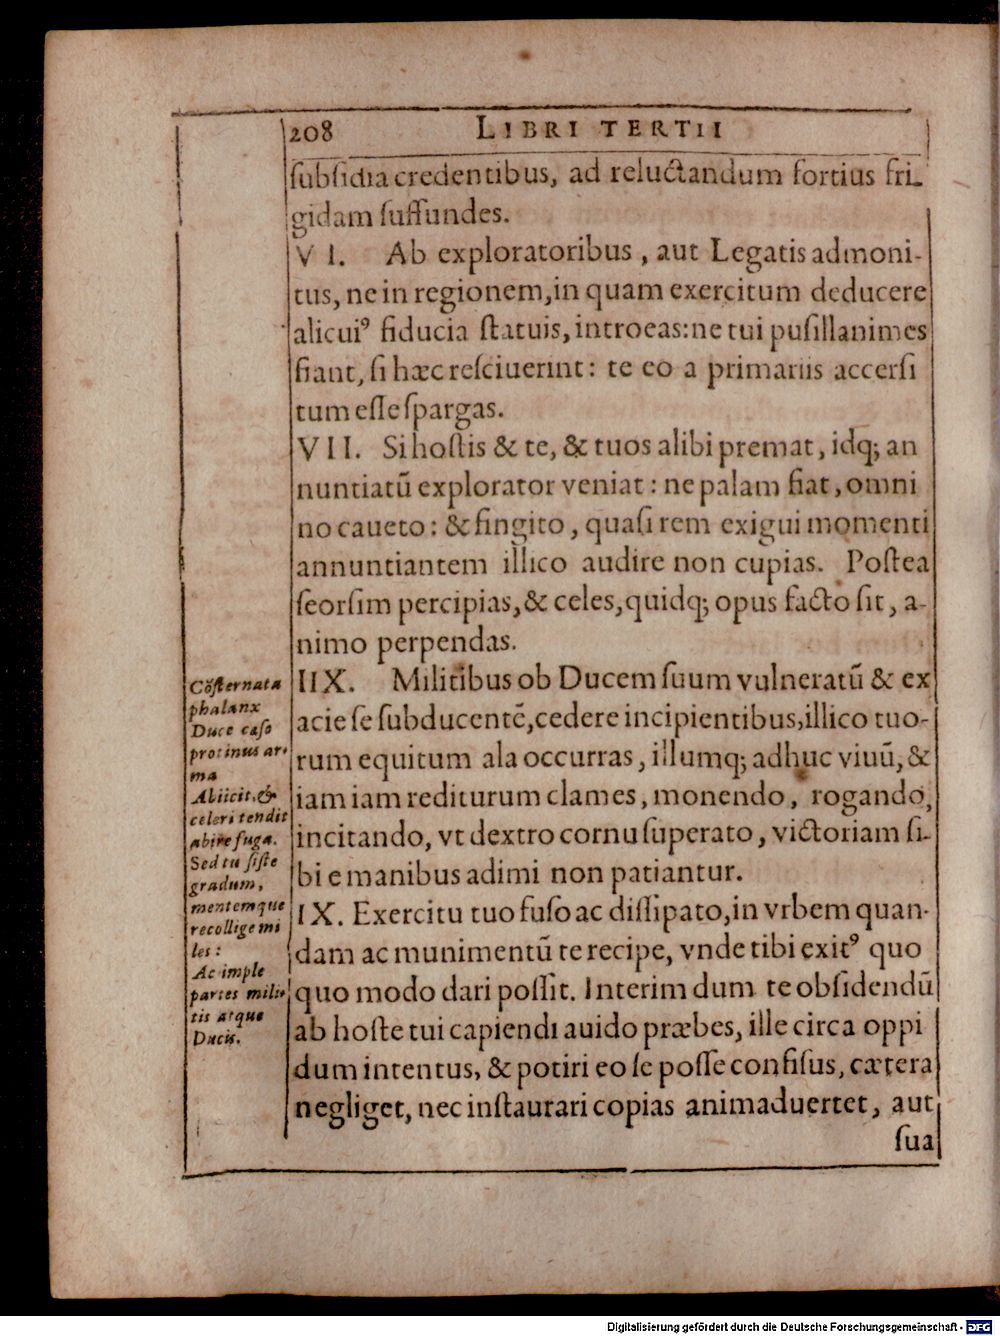 208 LIBRI TERTII
ſubſidia credentibus, ad reluctandum fortius fri-
gidam ſuffundes.
VI. Ab exploratoribus, aut Legatis admoni-
tus, ne in regionem, in quam exercitum deducere
alicuiꝰ fiducia ſtatuis, introeas: ne tui puſillanimes
fiant, ſi hæc reſciuerint: te eo a primariis accerſi
tum eſſe ſpargas.
VII. Si hoſtis & te, & tuos alibi premat, idq; an
nuntiatū explorator veniat: ne palam fiat, omni
no caueto: & fingito, quaſi rem exigui momenti
annuntiantem illico audire non cupias. Poſtea
ſeorſim percipias, & celes, quidq; opus facto ſit, a-
nimo perpendas.
IIX. Militibus ob Ducem ſuum vulneratū & ex
acie ſe ſubducentē, cedere incipientibus, illico tuo-
rum equitum ala occurras, illumq; adhuc viuū, &
iam iam rediturum clames, monendo, rogando,
incitando, vt dextro cornu ſuperato, victoriam ſi-
bi e manibus adimi non patiantur.
IX. Exercitu tuo fuſo ac diſſipato, in vrbem quan-
dam ac munimentū te recipe, vnde tibi exitꝰ quo
quo modo dari poſſit. Interim dum te obſidendū
ab hoſte tui capiendi auido præbes, ille circa oppi
dum intentus, & potiri eo ſe poſſe confiſus, cætera
negliget, nec inſtaurari copias animaduertet, aut
ſua
Cōſternata
phalanx
Duce cæſo
protinus ar-
ma
Abiicit, &
celeri tendit
abire fuga.
Sed tu ſiſte
gradum,
mentemque
recollige mi
les:
Ac imple
partes mili-
tis atque
Ducis.
Digitalisierung gefördert durch die Deutsche Forschungsgemeinschaft - DFG